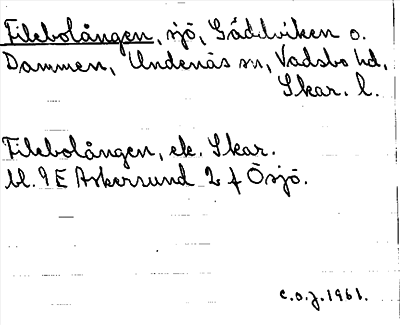 Filebolången, sjö, Gäddviken o.
Dammen, Undenäs sn, Vadsbo hd,
Skar. l.
Filebolången, ek. Skar.
bl. 9E Askersund 2 f Ösjö.
c.o.z. 1961.